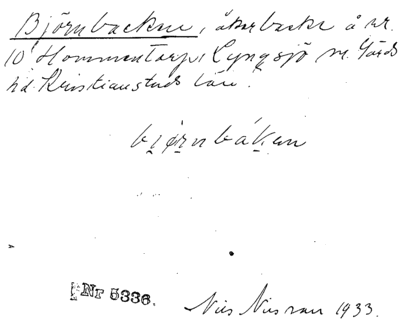 Björnbacken, åkerbacke å nr.
10 Hommentorp, Lyngsjö sn. Gärds
hd. Kristianstads län.
bjørnbákan
Nr 5336.
Nils Nilsson 1933.